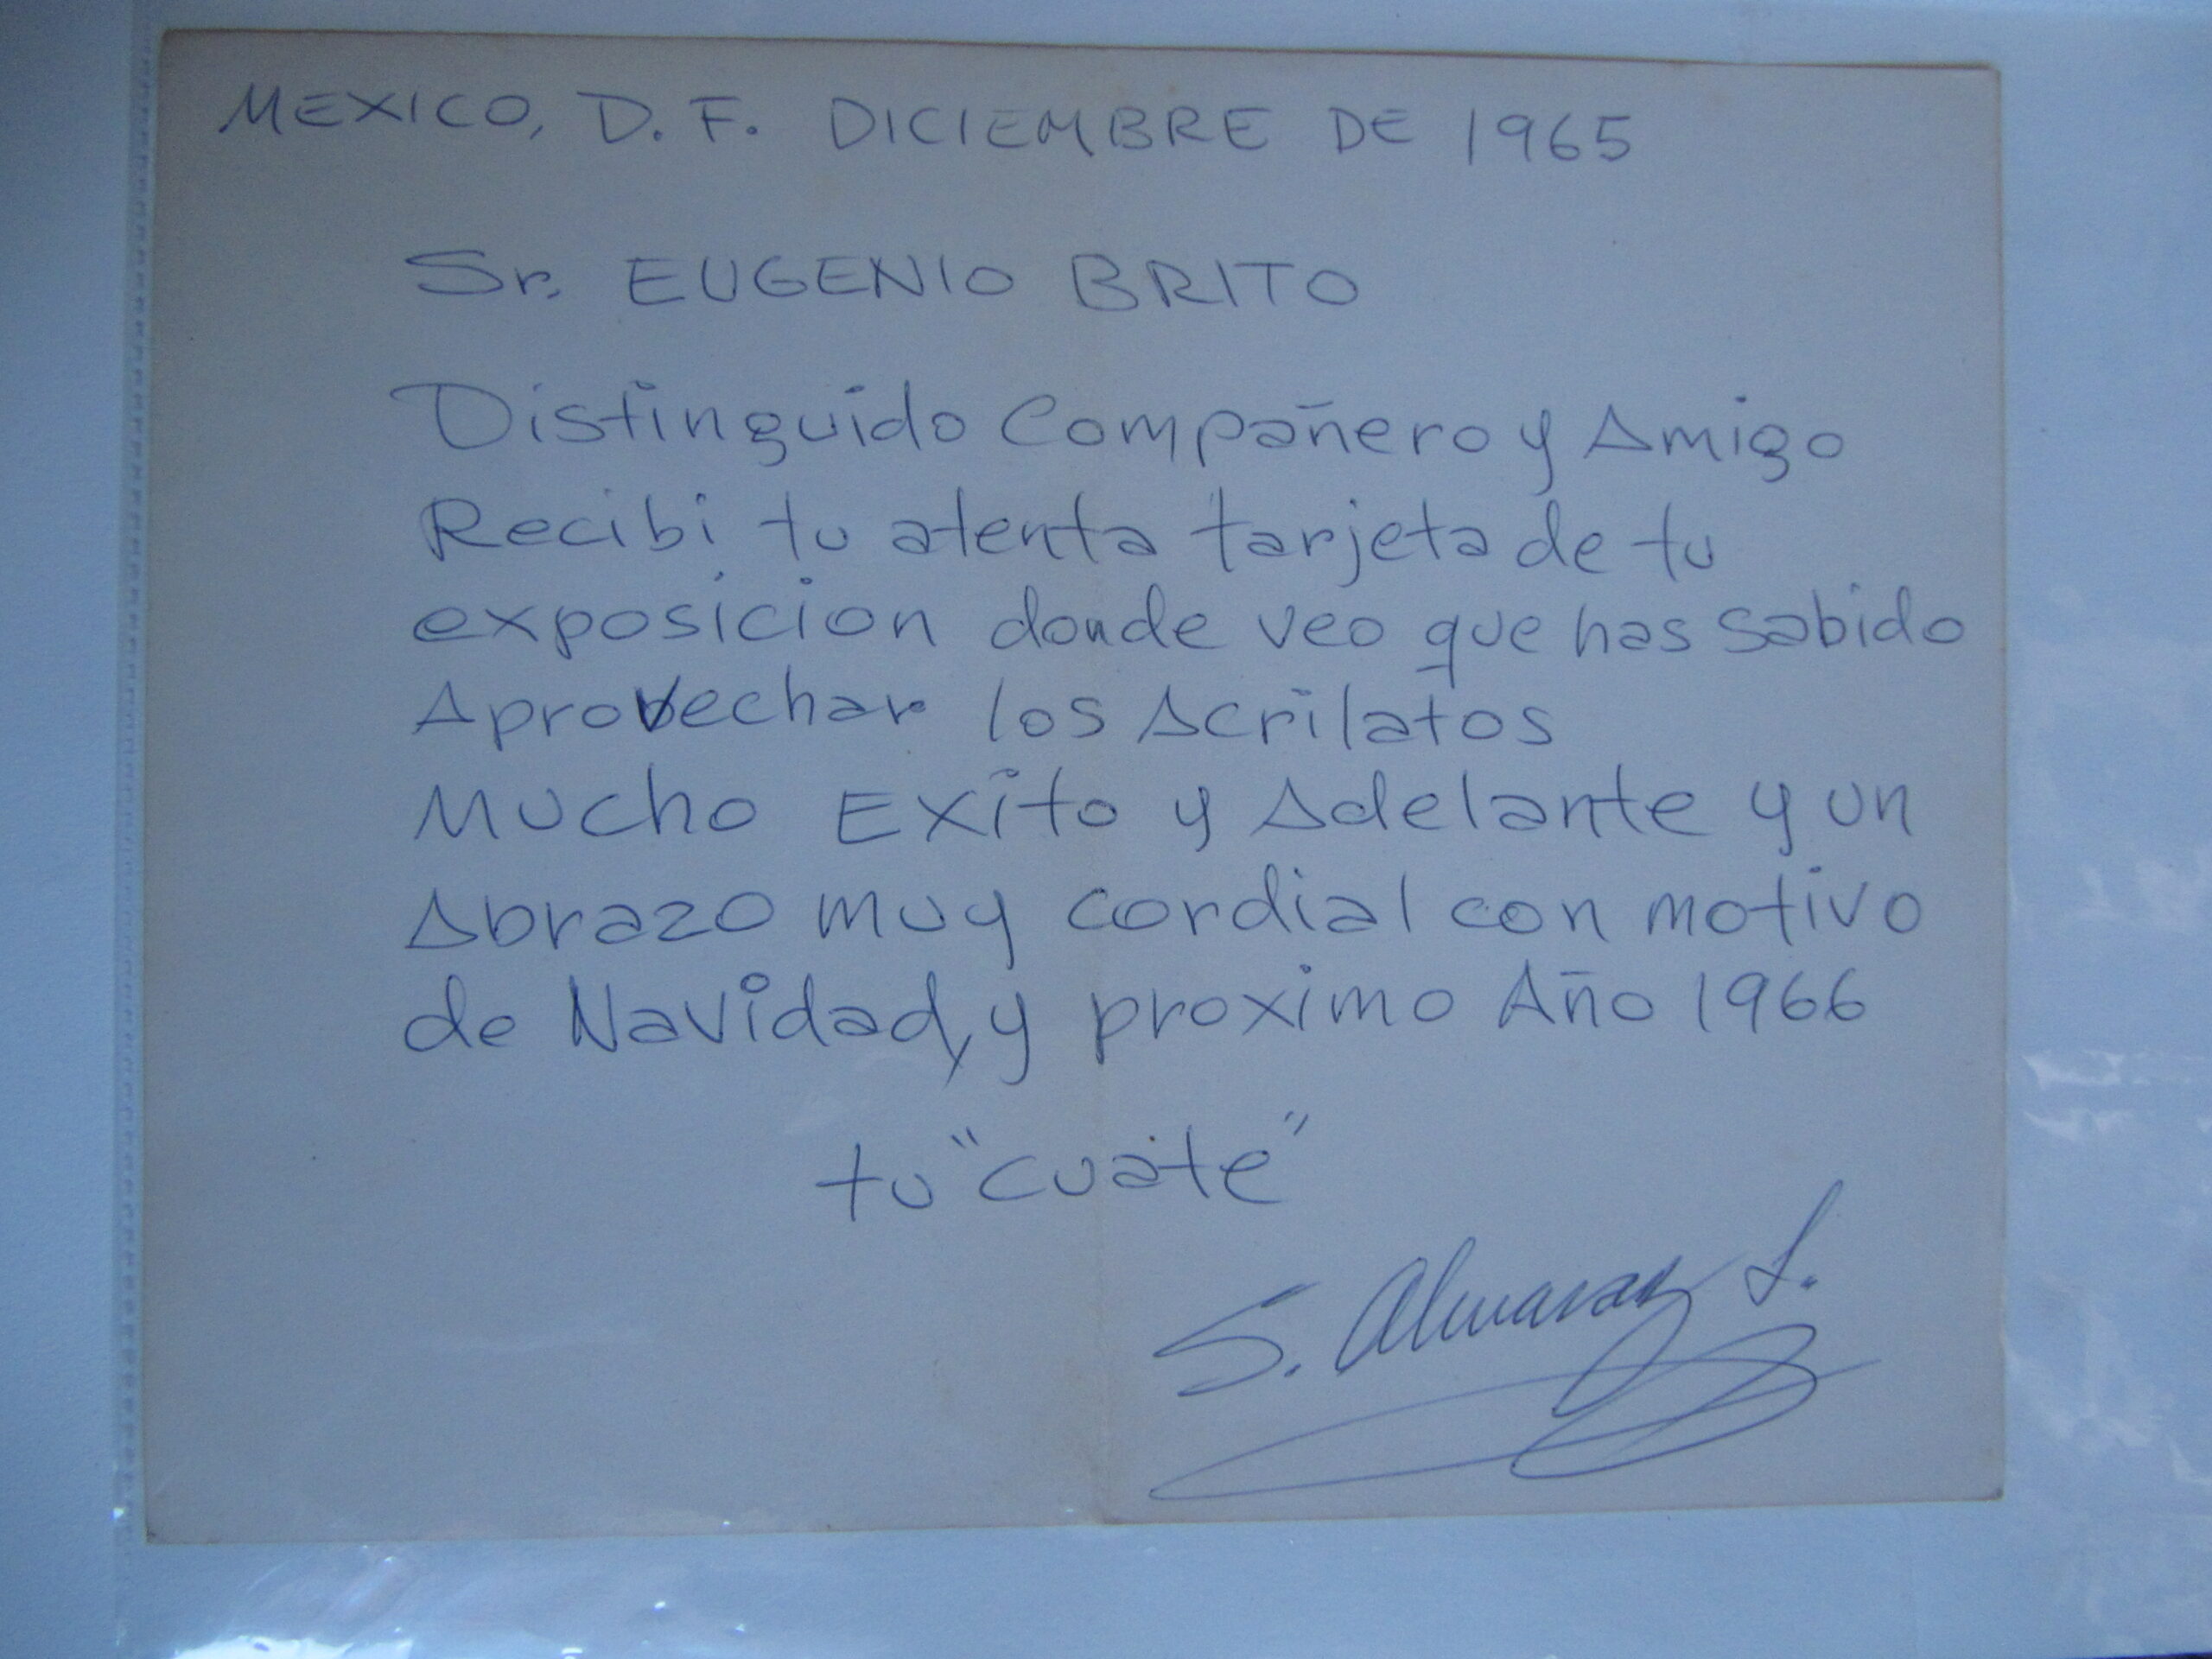 MEXICO, D. F. DICIEMBRE DE 1965
Sr. EUGENIO BRITO
Distinguido Compañero y Amigo
Recibi tu atenta tarjeta de tu
exposicion donde veo que has sabido
Aprovechar los Acrilatos
Mucho Exito y Adelante y un
Abrazo muy cordial con motivo
de Navidad, y proximo Año 1966
tu "cuate"
S. Almaraz L.